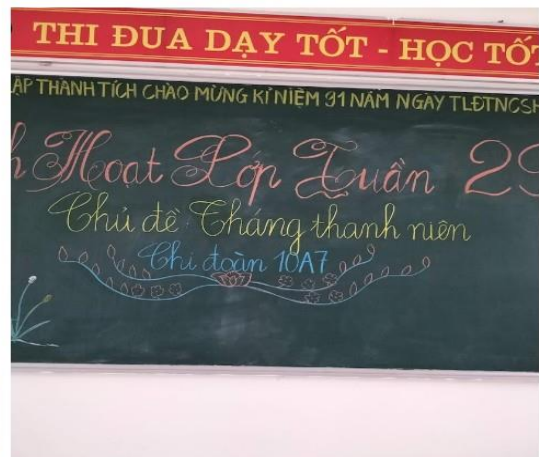 THI ĐUA DẠY TỐT - HỌC TỐT
LẬP THÀNH TÍCH CHÀO MỪNG KỈ NIỆM 91 NĂM NGÀY TLĐTNCSH
h Hoạt Lớp Tuần 29
Chủ đề Tháng thanh niên
Chi đoàn 10A7